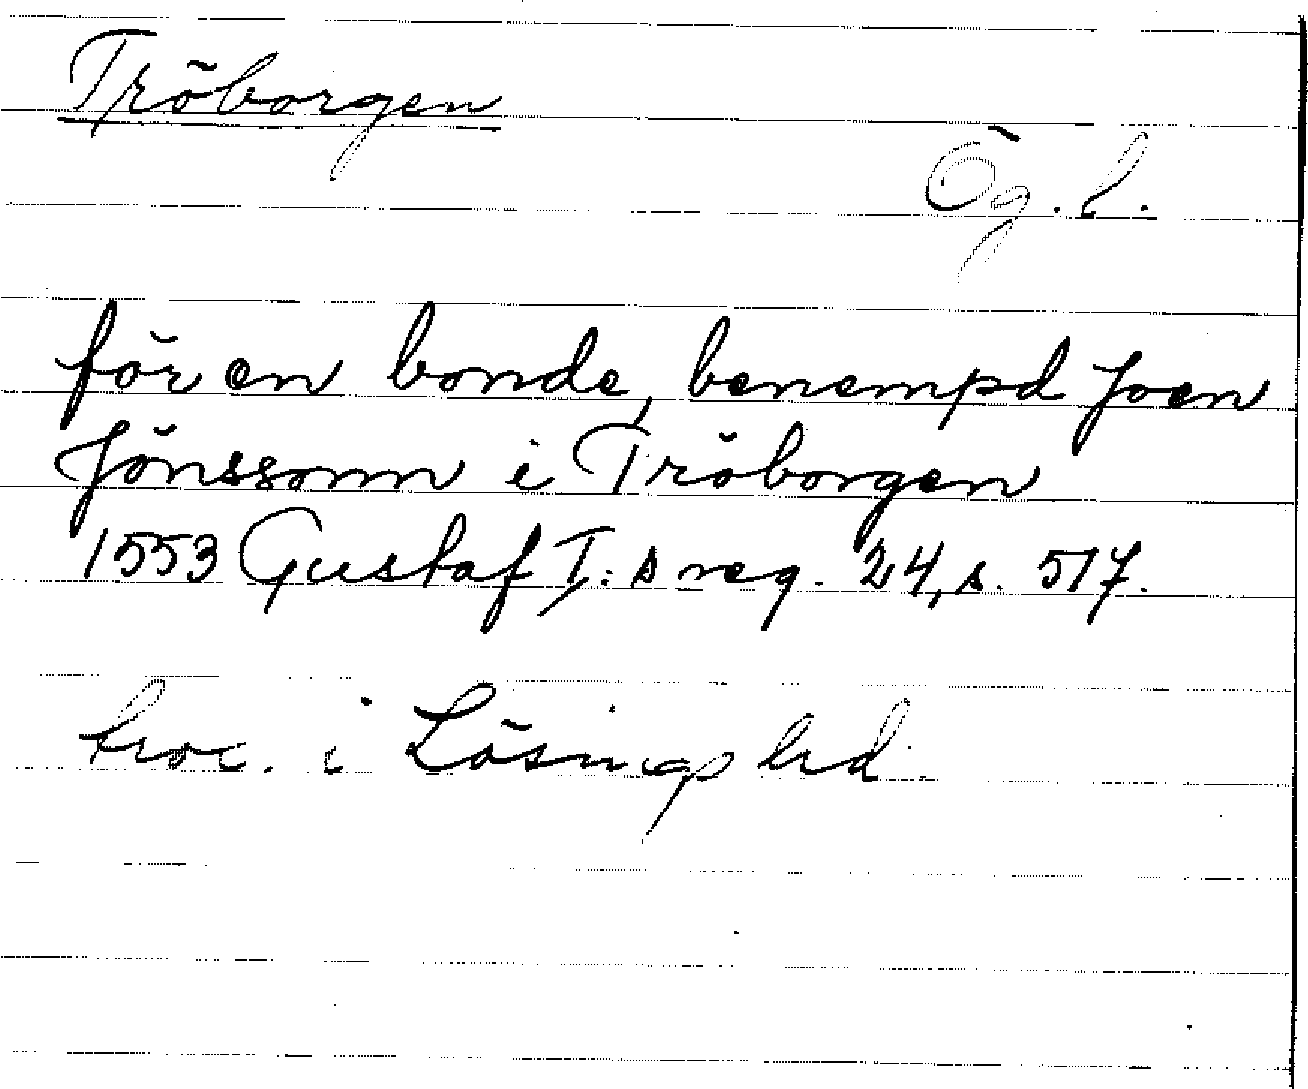 Tröborgen
Ög. l.
för en bonde, benempd Joen
Jönssonn i Tröborgen
1553 Gustaf I:s reg. 24, s. 517.
tror. i Lösings hd